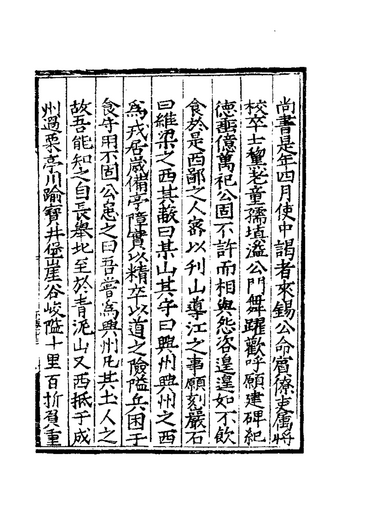 尚書是年四月使中謁者來錫公命賓僚吏屬將
校卒士黧老童孺填溢公門舞躍歡呼願建碑紀
德垂億萬祀公固不許而相與怨咨遑遑如不飲
食於是西鄙之人密以刋山導江之事願刻巖石
曰維梁之西其蔽曰某山其守曰興州興州之西
為戎居歲備亭障實以精卒以道之險隘兵困于
食守用不固公患之曰吾嘗為興州凡其土人之
故吾能知之自長舉北至於青泥山又西抵于成
州過栗亭川踰寶井堡崖谷峻隘十里百折負重